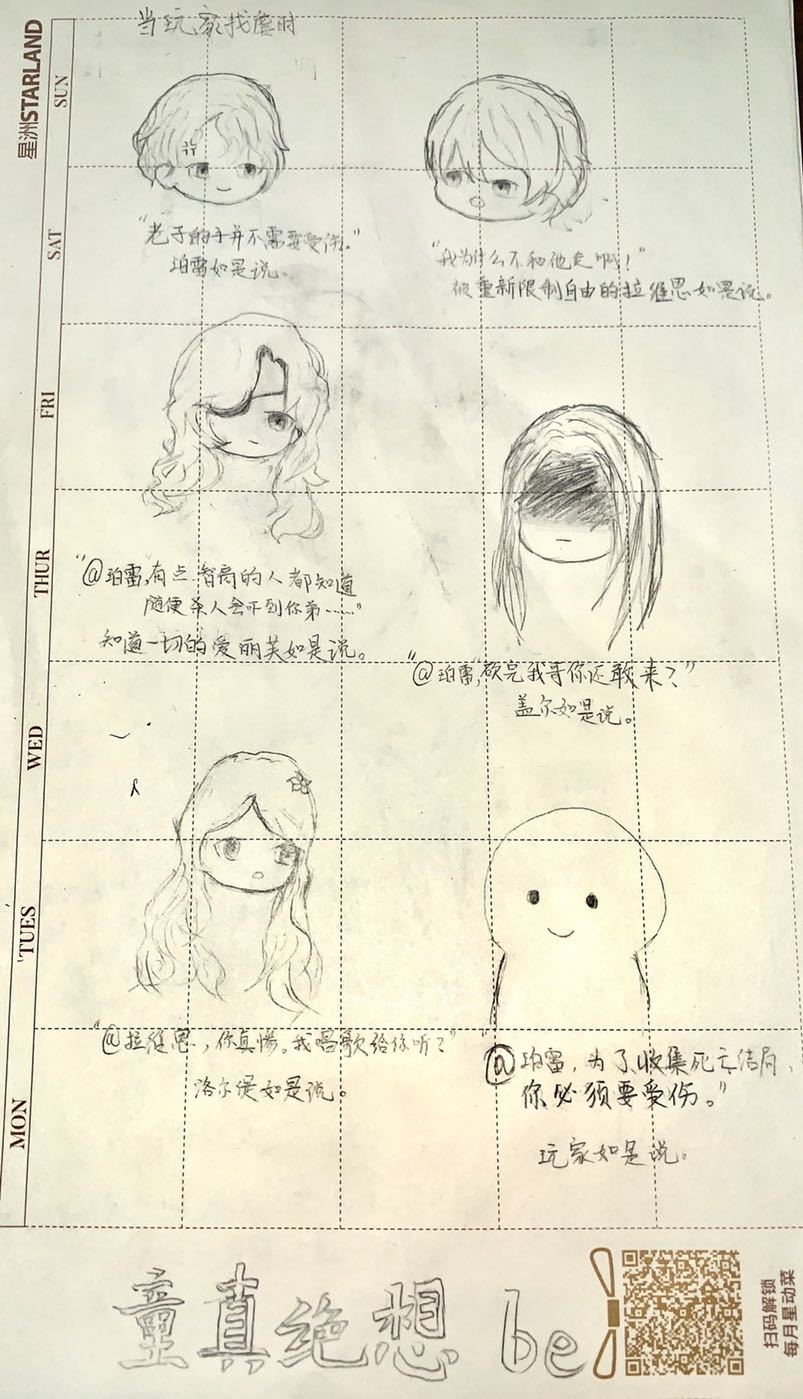 当玩家找虐时
星洲STARLAND
SUN
SAT
FRI
THUR
WED
TUES
MON
"老子的手并不需要受伤。"
珀雷如是说。
"我为什么不和他走啊！"
被重新限制自由的拉维思如是说。
"@珀雷,有点智商的人都知道
随便杀人会吓到你弟……"
知道一切的爱丽芙如是说。
"@珀雷,砍完我哥你还敢来？"
盖尔如是说。
"@拉维思，你真惨。我唱歌给你听？"
洛尔缇如是说。
"@珀雷，为了收集死亡结局，
你必须要受伤。"
玩家如是说。
童真绝想 be
扫码解锁
每月星动菜